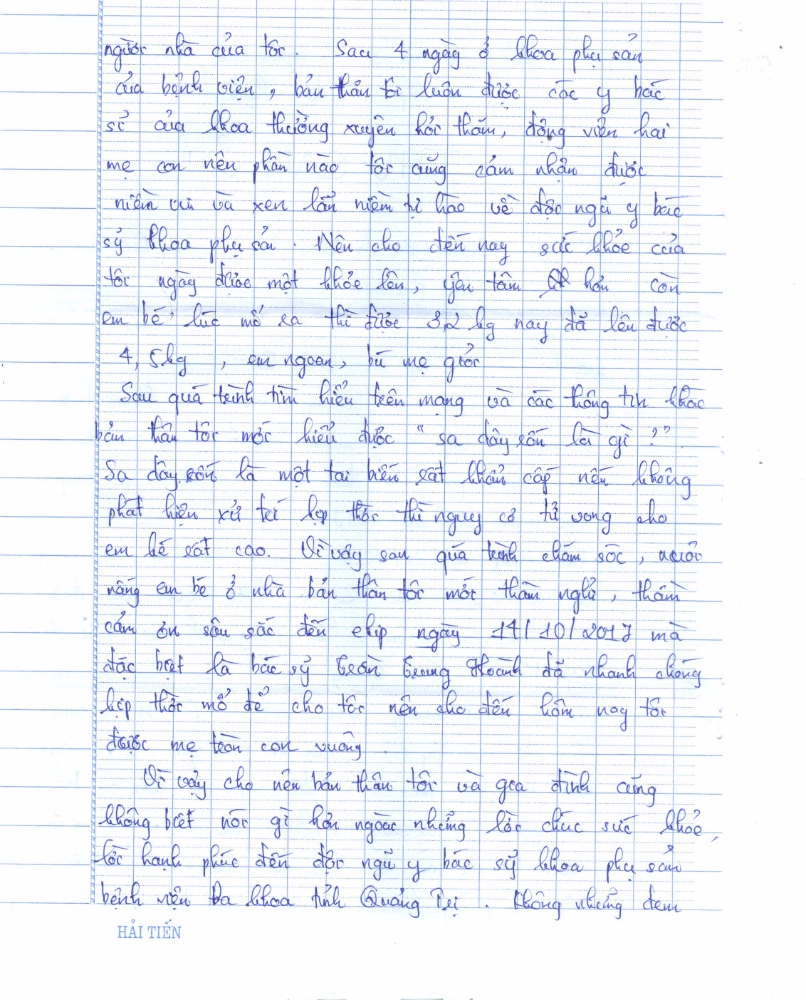 người nhà của tôi. Sau 4 ngày ở khoa phụ sản
của bệnh viện, bản thân tôi luôn được các y bác
sĩ của khoa thường xuyên hỏi thăm, động viên hai
mẹ con nên phần nào tôi cũng cảm nhận được
niềm vui và xen lẫn niềm tự hào về đội ngũ y bác
sỹ khoa phụ sản. Nên cho đến nay sức khỏe của
tôi ngày được một khỏe lên, yên tâm hơn còn
em bé lúc mổ ra thì được 3,2 kg nay đã lên được
4,5kg, em ngoan, bú mẹ giỏi
Sau quá trình tìm hiểu trên mạng và các thông tin khác
bản thân tôi mới hiểu được "sa dây rốn là gì?".
Sa dây rốn là một tai biến rất khẩn cấp nếu không
phát hiện xử trí kịp thời thì nguy cơ tử vong cho
em bé rất cao. Vì vậy sau quá trình chăm sóc, nuôi
nấng em bé ở nhà bản thân tôi mới thầm nghĩ, thầm
cảm ơn sâu sắc đến ekip ngày 14/10/2017 mà
đặc biệt là bác sỹ Trần Trung Hoành đã nhanh chóng
kịp thời mổ đẻ cho tôi nên cho đến hôm nay tôi
được mẹ tròn con vuông.
Vì vậy cho nên bản thân tôi và gia đình cũng
không biết nói gì hơn ngoài những lời chúc sức khỏe,
lời hạnh phúc đến đội ngũ y bác sỹ khoa phụ sản
bệnh viện Đa khoa tỉnh Quảng Trị. Không những đem
HẢI TIẾN